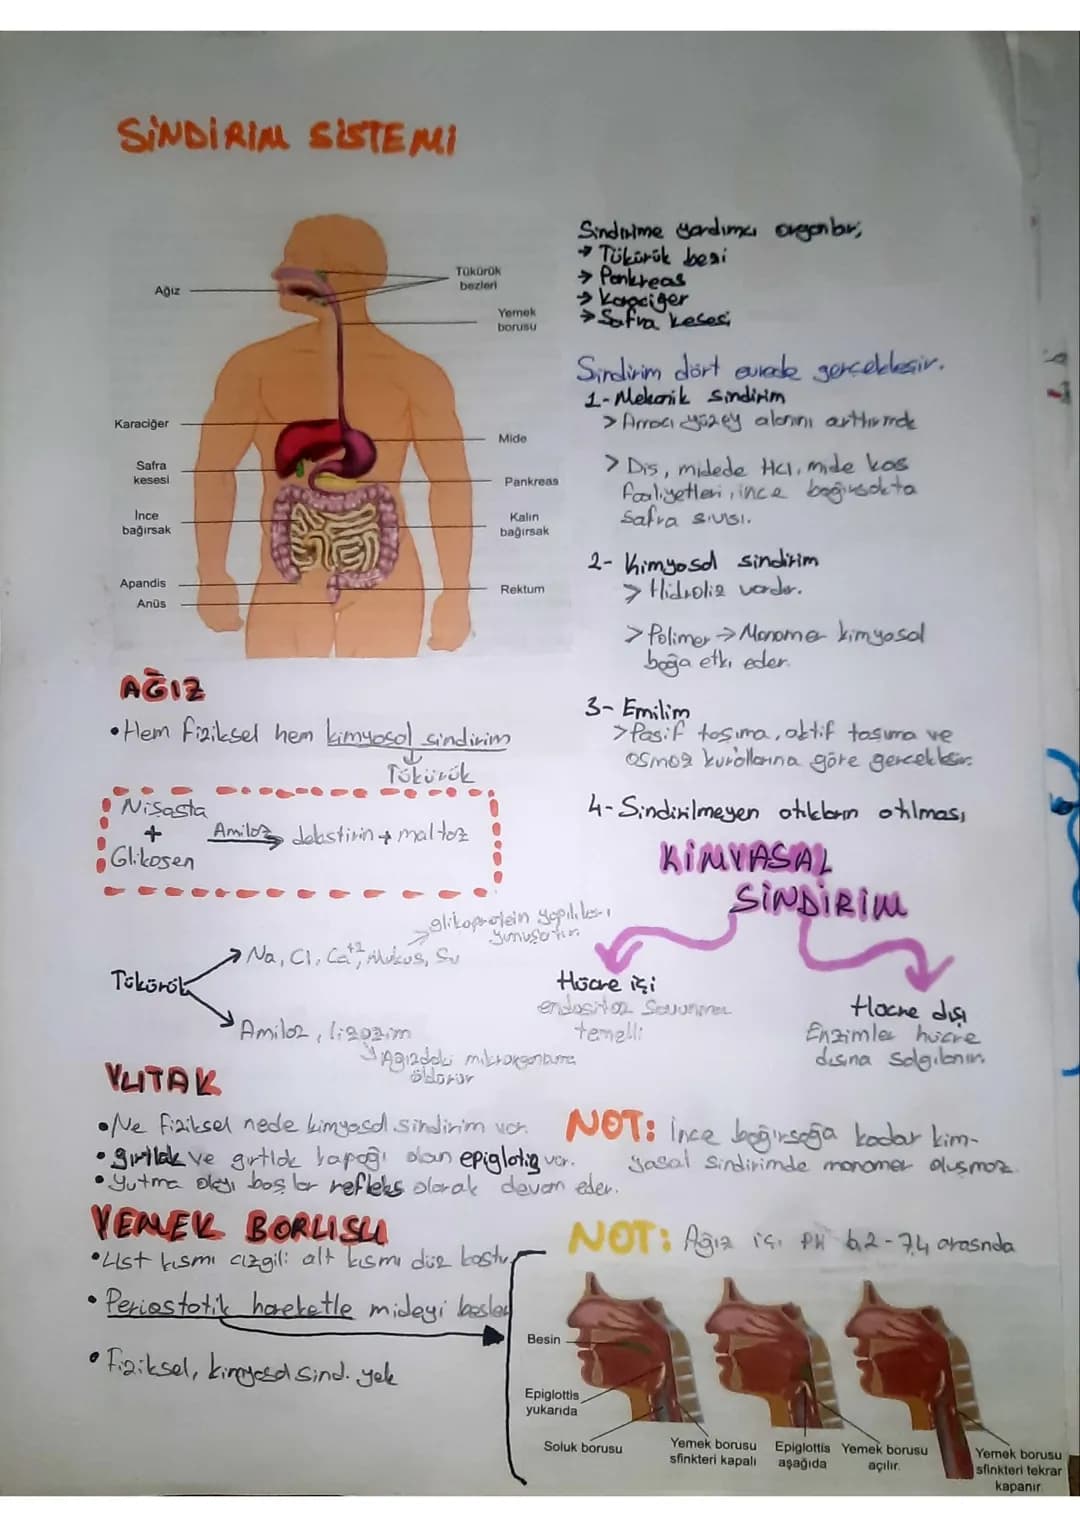 SİNDİRİM SİSTEMİ
Ağız
Tükürük
bezleri
Yemek
borusu
Karaciğer
Safra
kesesi
İnce
bağırsak
Apandis
Anüs
Mide
Pankreas
Kalın
bağırsak
Rektum
Sindirime yardımcı organlar;
→ Tükürük bezi
→ Pankreas
→ Karaciğer
→ Safra kesesi
Sindirim dört evrede gerçekleşir.
1- Mekanik sindirim
> Amacı yüzey alanını arttırmak
> Diş, midede HCl, mide kas
faaliyetleri, ince bağırsakta
safra sıvısı.
2- Kimyasal sindirim
> Hidroliz vardır.
> Polimer → Monomer kimyasal
bağa etki eder.
3- Emilim
> Pasif taşıma, aktif taşıma ve
osmoz kurallarına göre gerçekleşir.
4- Sindirilmeyen atıkların atılması
AĞIZ
• Hem fiziksel hem kimyasal sindirim
Tükürük
Nişasta
+
Glikojen
Amiloz
dekstirin + maltoz
Tükürük
→ Na, Cl, Ca+2, Mukus, Su
glikoprotein yapılıları
yumuşatır
→ Amiloz, lizozim
Ağızdaki mikroorganizma
öldürür
KİMYASAL
SİNDİRİM
Hücre içi
endositoz savunma
temelli
Hücre dışı
Enzimler hücre
dışına salgılanır.
YUTAK
• Ne fiziksel nede kimyasal sindirim var.
• gırtlak ve gırtlak kapağı olan epiglotis var.
• Yutma olayı başlar refleks olarak devam eder.
NOT: İnce bağırsağa kadar kim-
yasal sindirimde monomer oluşmaz.
YEMEK BORUSU
• Üst kısmı çizgili alt kısmı düz kastır
• Periastotik hareketle mideyi besler
• Fiziksel, kimyasal sind. yok
NOT: Ağız içi PH 6,2-7,4 arasında
Besin
Epiglottis
yukarıda
Soluk borusu
Yemek borusu
sfinkteri kapalı
Epiglottis
aşağıda
Yemek borusu
açılır.
Yemek borusu
sfinkteri tekrar
kapanır.